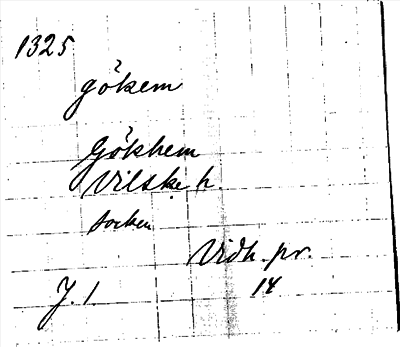 1325
gökem
Gökhem
Vilske h
socken
Vidh. pr.
J. 1 14